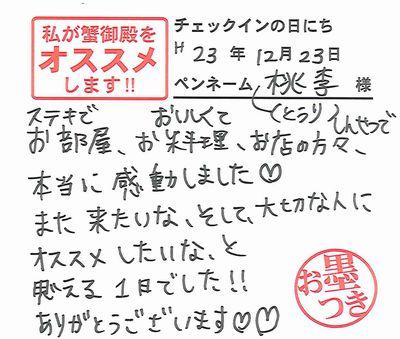 私が蟹御殿を
オススメ
します!!
チェックインの日にち
H 23 年 12 月 23 日
ペンネーム 桃李 様
(とうり
ステキで おいしくて しんせつで
お部屋、お料理、お店の方々、
本当に 感動しました♡
また 来たいな、そして、大切な人に
オススメ したいな、と
思える 1日でした!!
ありがとうございます♡♡
お墨つき